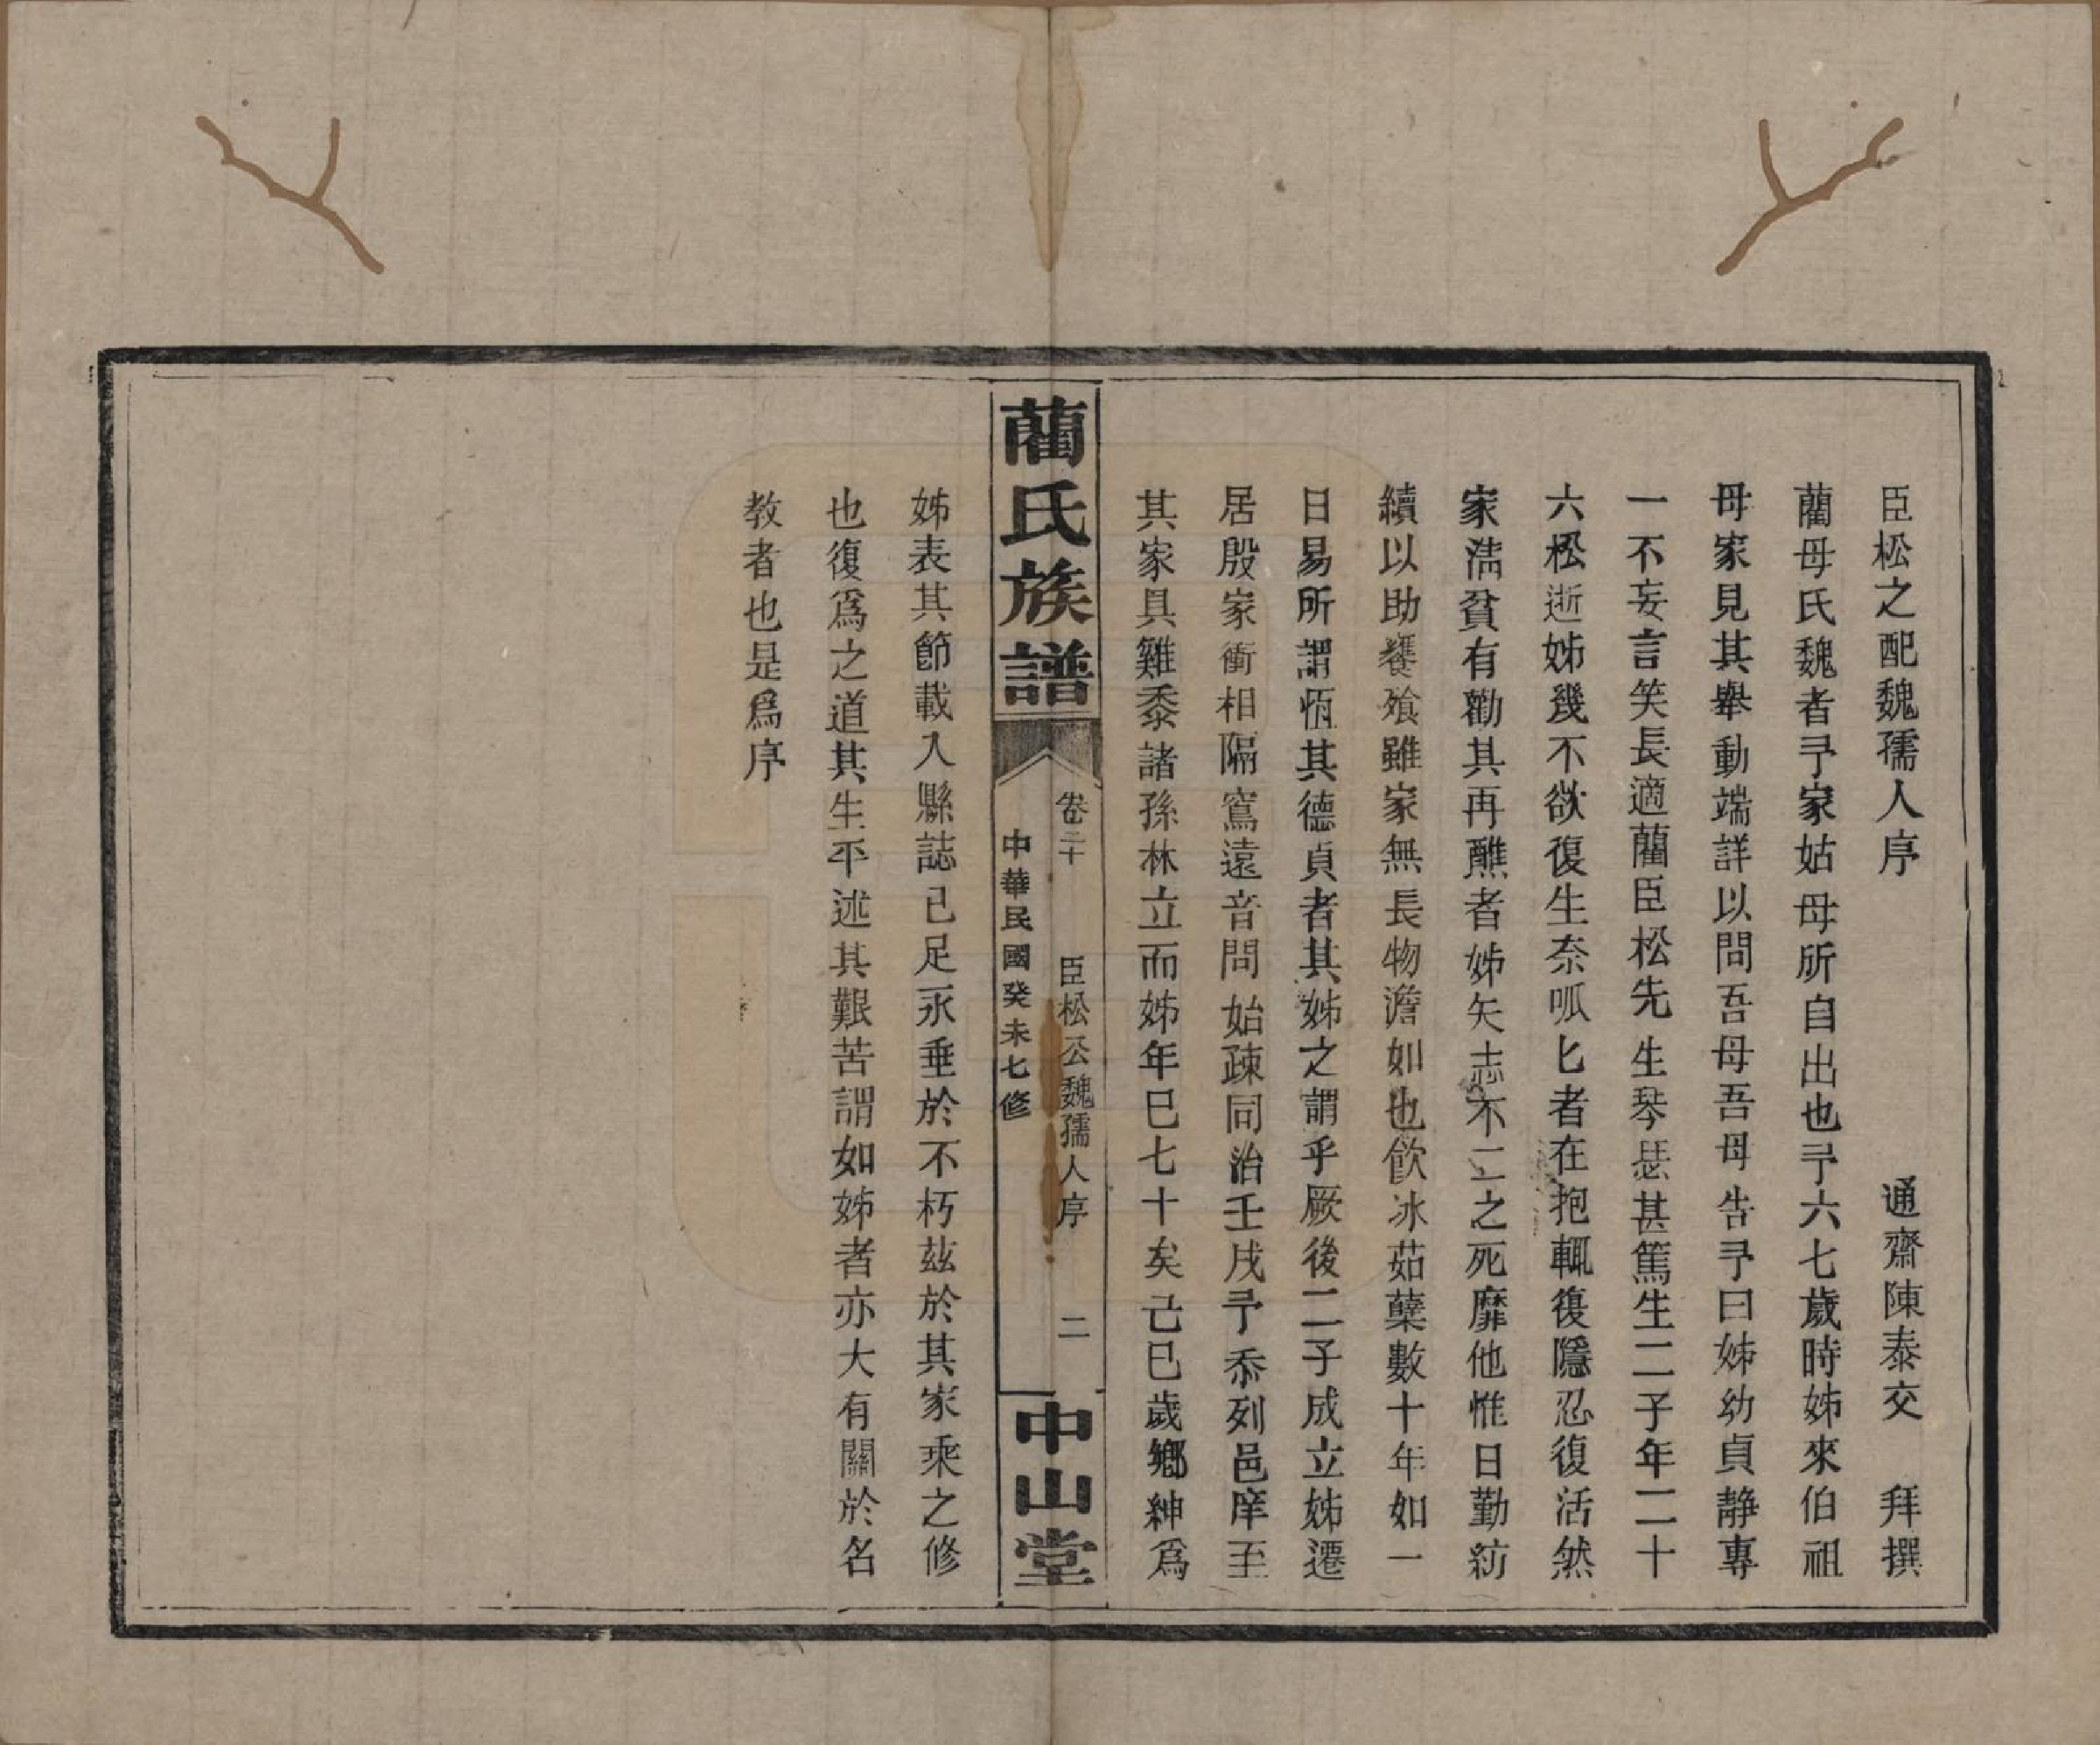 臣松之配魏孺人序　通齋陳泰交　拜撰
藺母氏魏者予家姑母所自出也予六七歲時姊來伯祖
母家見其舉動端詳以問吾母吾母告予曰姊幼貞靜專
一不妄言笑長適藺臣松先生琴瑟甚篤生二子年二十
六松逝姊幾不欲復生奈呱匕者在抱輒復隱忍復活然
家清貧有勸其再醮者姊矢志不二之死靡他惟日勤紡
績以助饔飧雖家無長物澹如也飲冰茹蘗數十年如一
日易所謂恒其德貞者其姊之謂乎厥後二子成立姊遷
居殷家衝相隔寫遠音問始疎同治壬戌予忝列邑庠至
其家具雞黍諸孫林立而姊年巳七十矣己巳歲鄉紳爲
藺氏族譜
卷二十　臣松公魏孺人序　二
中華民國癸未七修
中山堂
姊表其節載入縣誌已足永垂於不朽茲於其家乘之修
也復爲之道其生平述其艱苦謂如姊者亦大有關於名
教者也是爲序